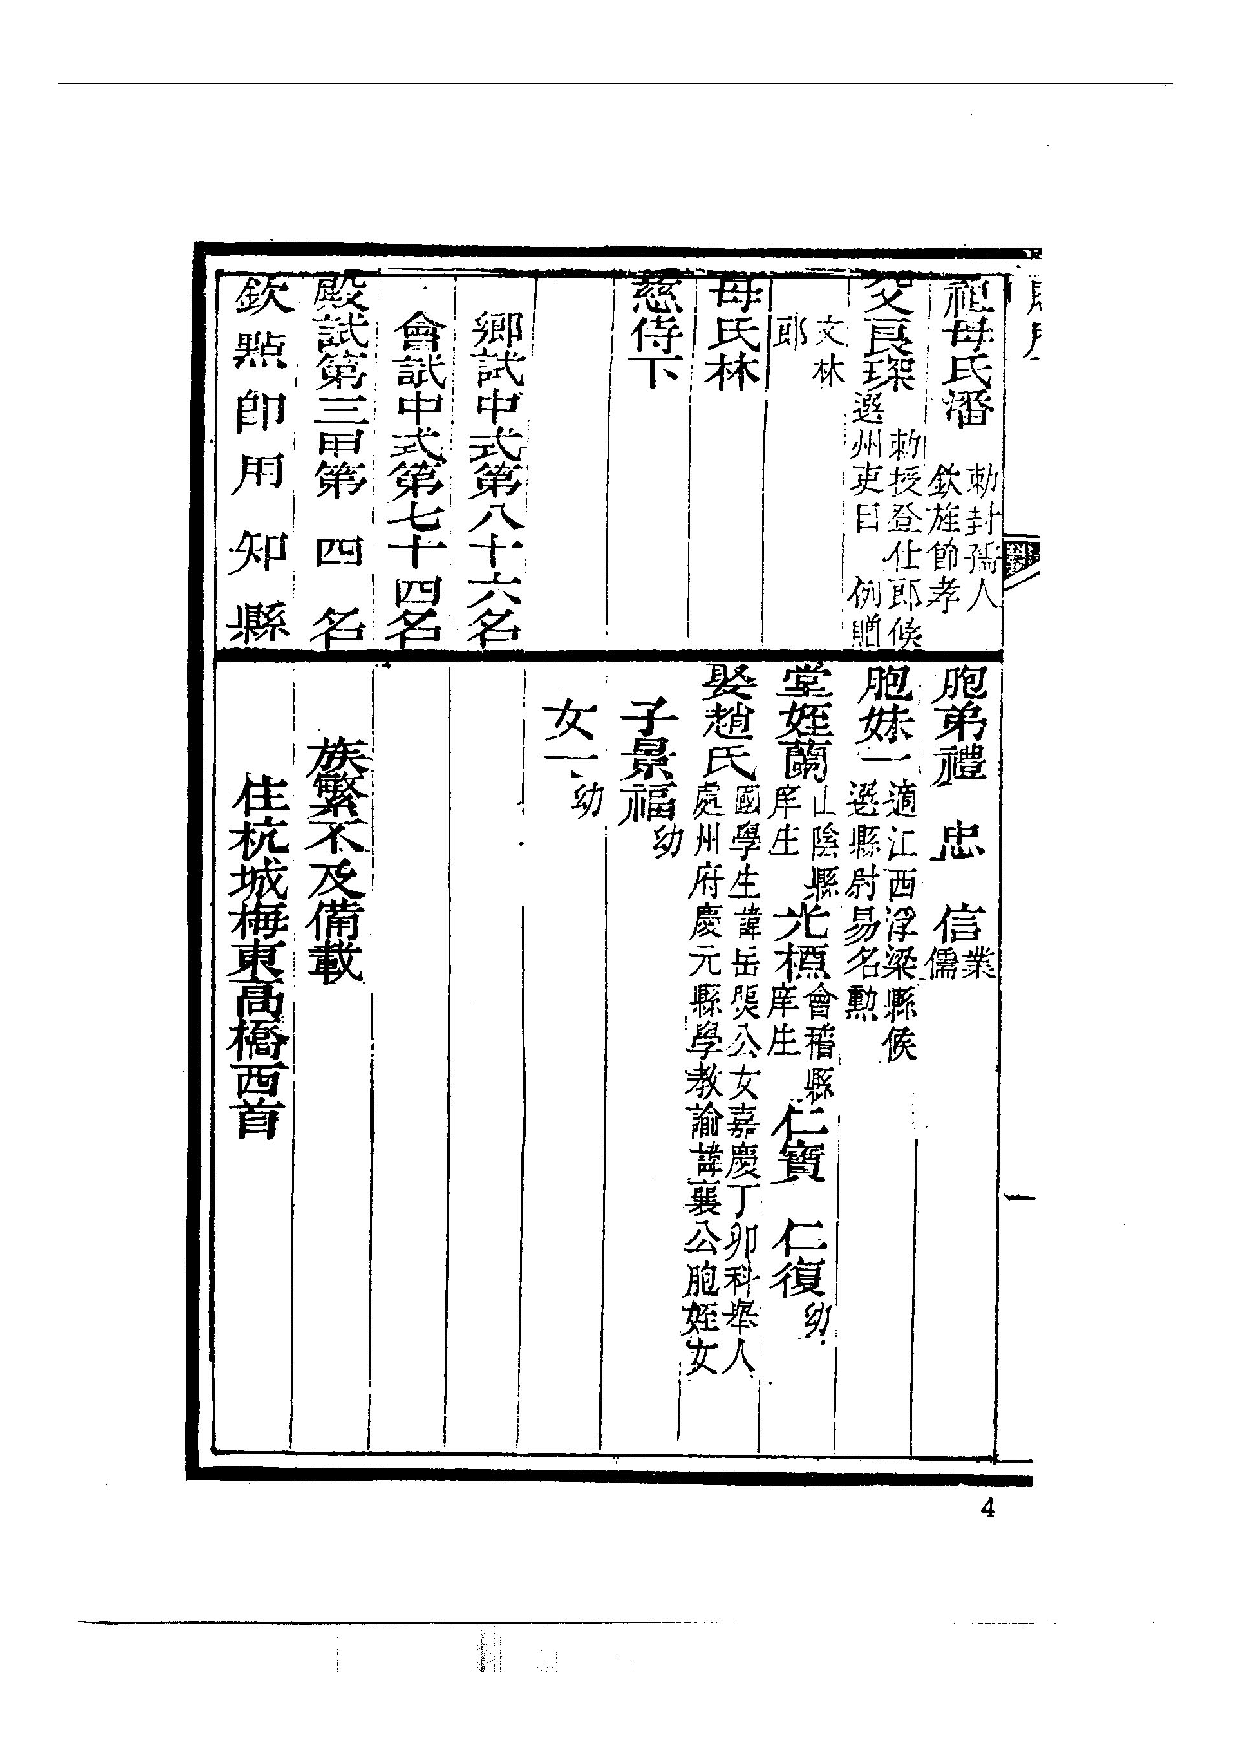 祖母氏潘
勅封孺人
欽旌節孝
父良琛
勅授登仕郎候
選州吏目 例贈
文林
郎
母氏林
慈侍下
鄉試中式第八十六名
會試中式第七十四名
殿試第三甲第四名
欽點即用知縣
胞弟禮 忠 信
業
儒
胞妹一
適江西浮梁縣候
選縣尉易名勳
堂姪蘭
山陰縣
庠生
光標
會稽縣
庠生
仁寶 仁復
幼
娶趙氏
國學生諱岳㷼公女嘉慶丁卯科舉人
處州府慶元縣學教諭諱襄公胞姪女
子景福
幼
女一
幼
族繁不及備載
住杭城梅東高橋西首
一
4